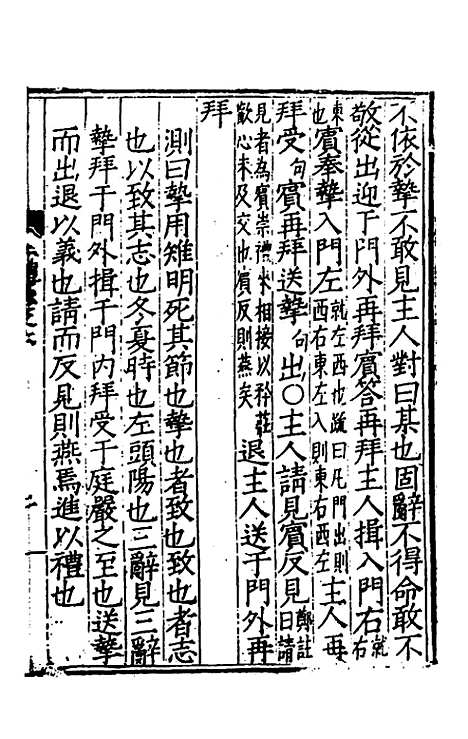 不依於摯不敢見主人對曰某也固辭不得命敢不
敬從出迎于門外再拜賓答再拜主人揖入門右就右
東也賓奉摯入門左就左西也疏曰凡門出則西右東左入則東右西左主人再
拜受句賓再拜送摯句出〇主人請見賓反見鄭註曰請
見者為賓崇禮來相接以矜莊歡心未及交也賓反則燕矣退主人送于門外再
拜
測曰摯用雉明死其節也摯也者致也致也者志
也以致其志也冬夏時也左頭陽也三辭見三辭
摯拜于門外揖于門内拜受于庭嚴之至也送摯
而出退以義也請而反見則燕焉進以禮也